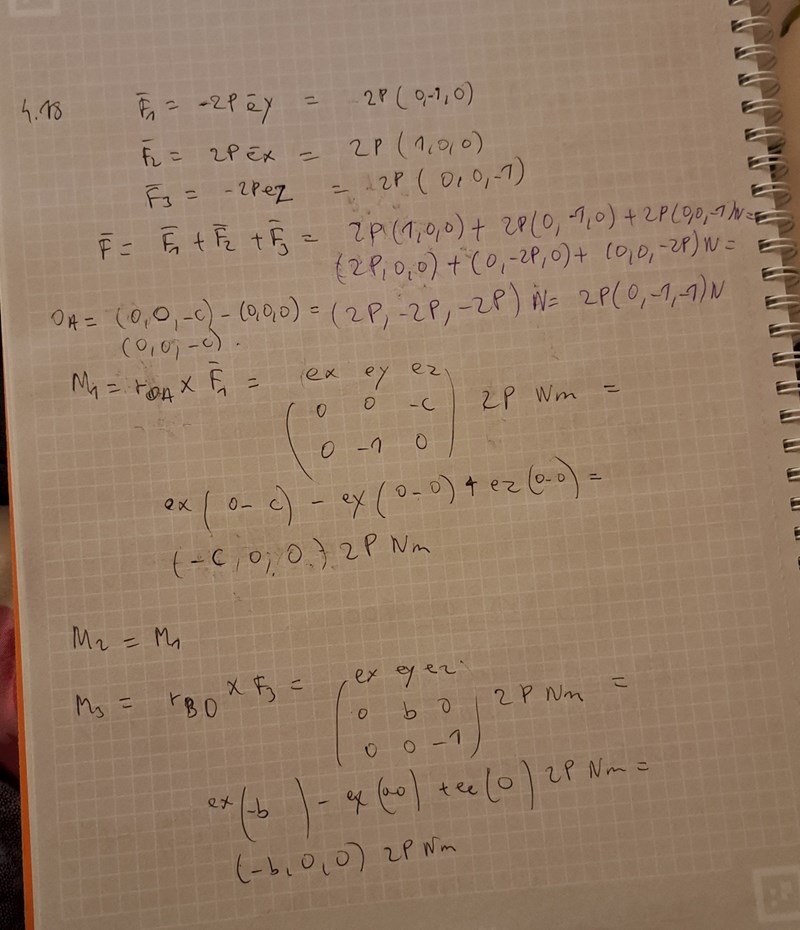 4.18 F̄₁ = -2P ēy = 2P(0,-1,0)
F̄₂ = 2P ēx = 2P(1,0,0)
F̄₃ = -2Pez = 2P(0,0,-1)
F̄ = F̄₁ + F̄₂ + F̄₃ = 2P(1,0,0) + 2P(0,-1,0) + 2P(0,0,-1)N =
(2P,0,0) + (0,-2P,0) + (0,0,-2P)N =
OA = (0,0,-c) - (0,0,0) = (2P,-2P,-2P) N = 2P(0,-1,-1)N
(0,0,-c).
M₁ = rOA × F̄₁ = ex ey ez
0 0 -c 2P Nm =
0 -1 0
ex(0-c) - ex(0-0) + ez(0-0) =
(-c,0,0) 2P Nm
M₂ = M₁
M₃ = rBO × F₃ = ex ey ez
0 b 0 2P Nm =
0 0 -1
ex(-b) - ex(0-0) + ez(0) 2P Nm =
(-b,0,0) 2P Nm